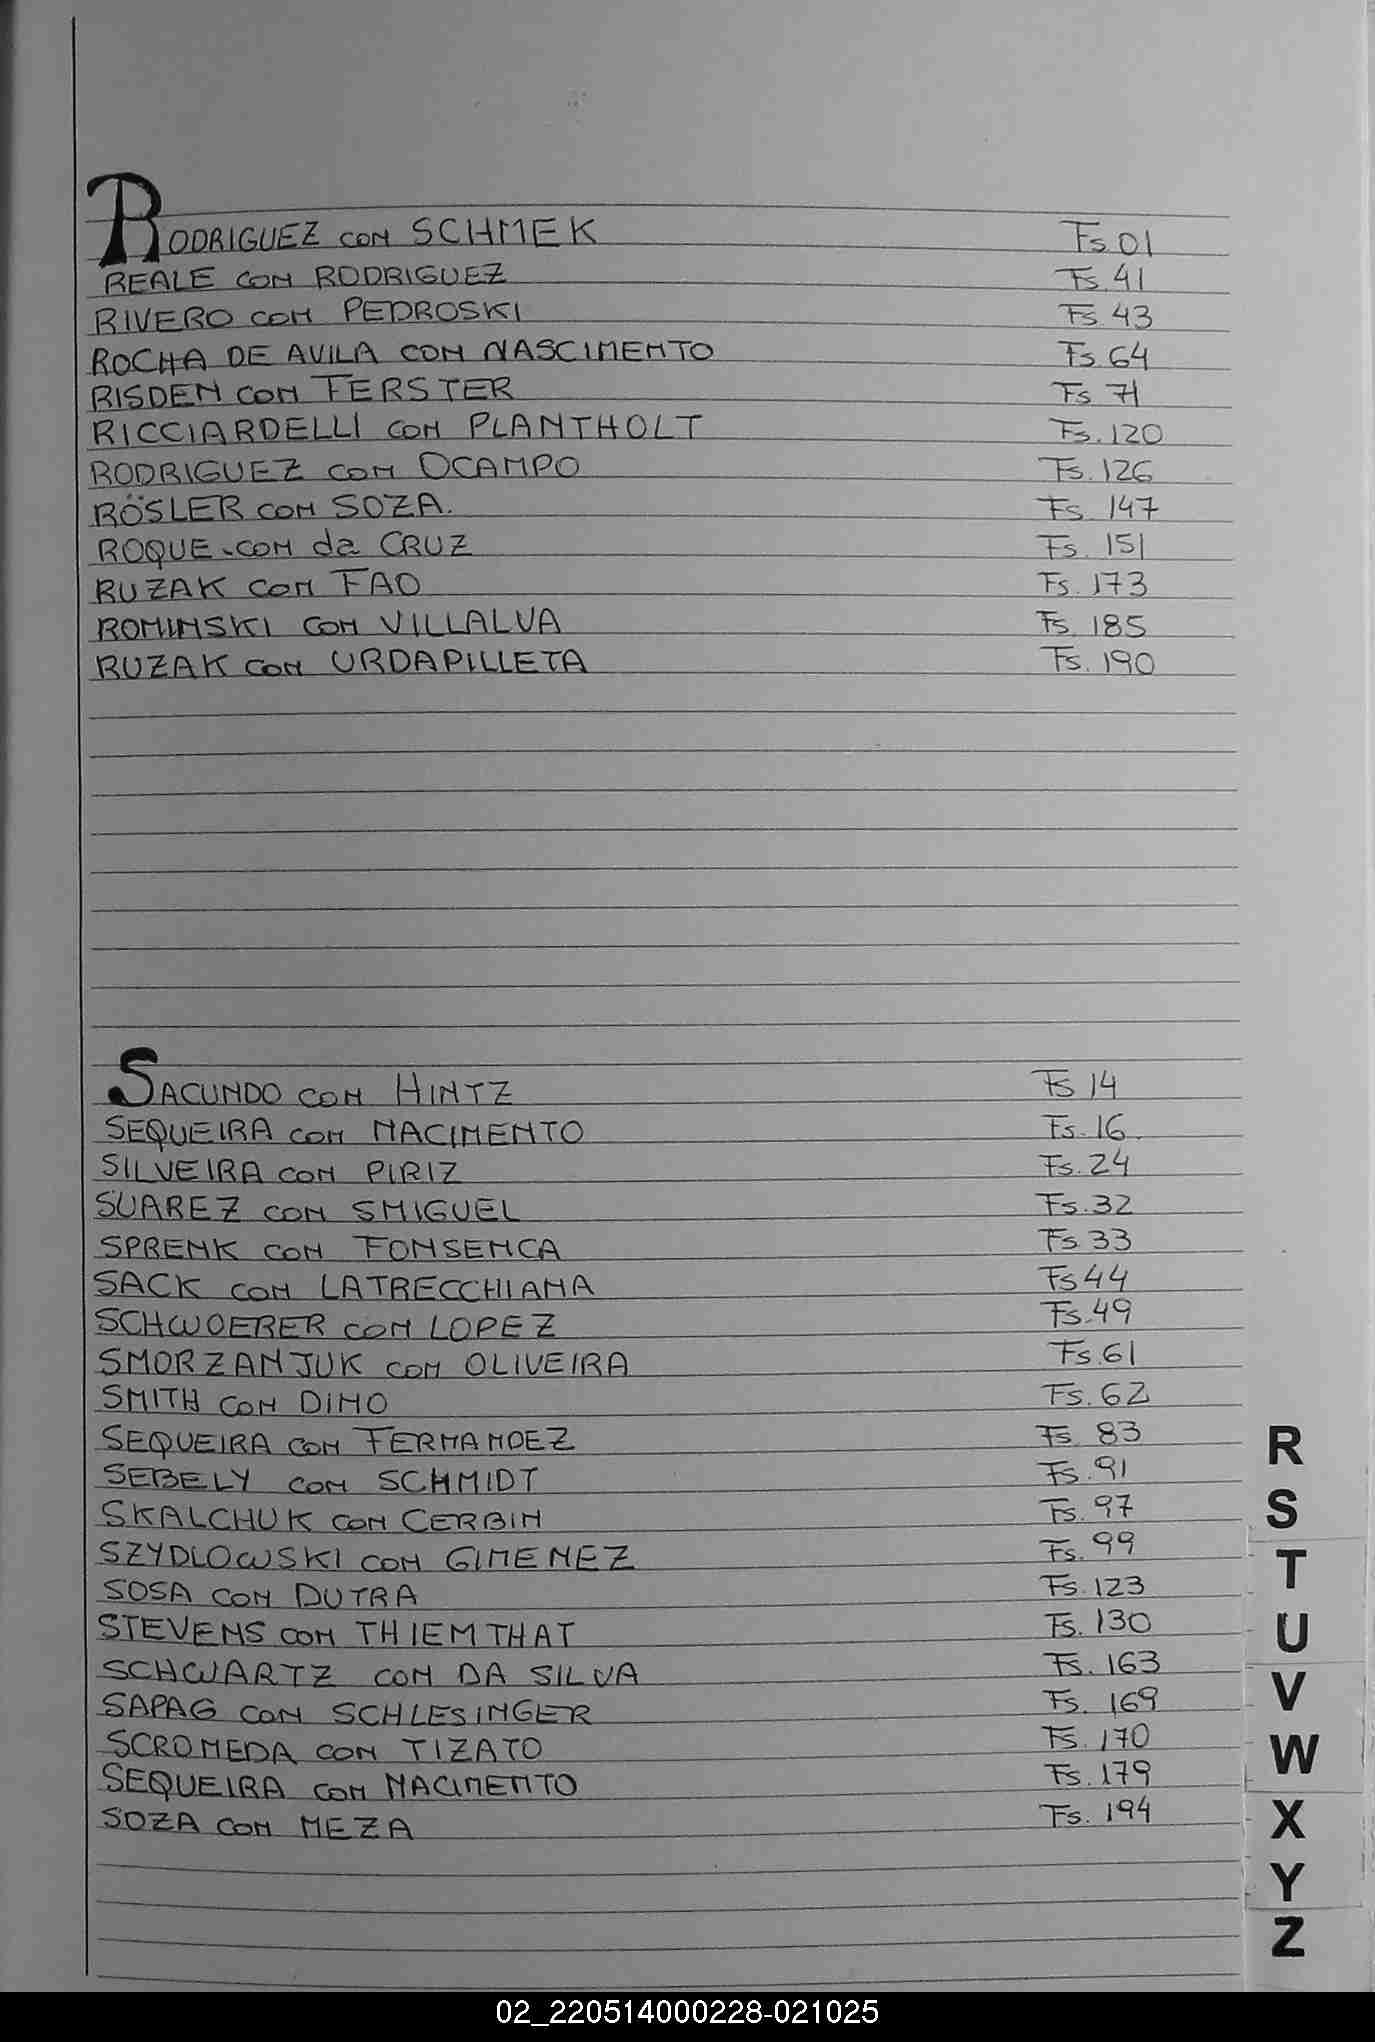 RODRIGUEZ con SCHMEK Fs 01
REALE con RODRIGUEZ Fs. 41
RIVERO con PEDROSKI Fs 43
ROCHA DE AVILA con NASCIMENTO Fs. 64
RISDEN con FERSTER Fs 71
RICCIARDELLI con PLANTHOLT Fs. 120
RODRIGUEZ con OCAMPO Fs. 126
RÖSLER con SOZA. Fs. 147
ROQUE con da CRUZ Fs. 151
RUZAK con FAO Fs. 173
ROMINSKI con VILLALVA Fs. 185
RUZAK con URDAPILLETA Fs. 190
SACUNDO con HINTZ Fs 14
SEQUEIRA con NACIMENTO Fs. 16
SILVEIRA con PIRIZ Fs. 24
SUAREZ con SMIGUEL Fs. 32
SPRENK con FONSENCA Fs 33
SACK con LATRECCHIANA Fs 44
SCHWOERER con LOPEZ Fs. 49
SMORZANJUK con OLIVEIRA Fs. 61
SMITH con DINO Fs. 62
SEQUEIRA con FERNANDEZ Fs. 83
SEBELY con SCHMIDT Fs. 91
SKALCHUK con CERBIN Fs. 97
SZYDLOWSKI con GIMENEZ Fs. 99
SOSA con DUTRA Fs. 123
STEVENS con THIEMTHAT Fs. 130
SCHWARTZ con DA SILVA Fs. 163
SAPAG con SCHLESINGER Fs. 169
SCROMEDA con TIZATO Fs. 170
SEQUEIRA con NACIMENTO Fs. 179
SOZA con MEZA Fs. 194
R
S
T
U
V
W
X
Y
Z
02_220514000228-021025